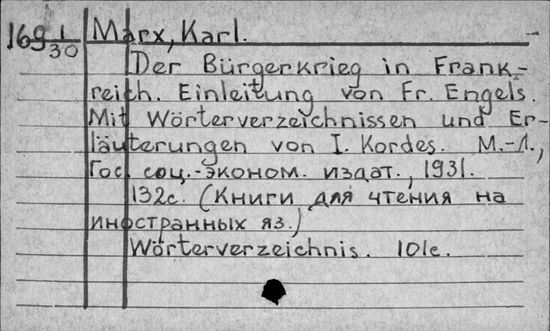 169 1/30 Marx, Karl.
Der Bürgerkrieg in Frank-
reich. Einleitung von Fr. Engels.
Mit Wörterverzeichnissen und Er-
läuterungen von I. Kordes. М.-Л.,
Гос. соц.-эконом. издат., 1931.
132с. (Книги для чтения на
иностранных яз.)
Wörterverzeichnis. 101с.